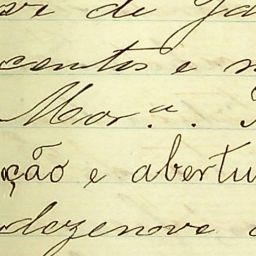 de Ja
centos e
Mor.ª.
ção e abertu
dezenove